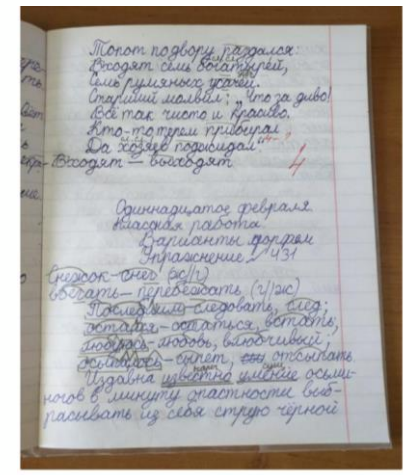 Топот по двору раздался:
Входят семь богатырей,
Семь румяных усачей.
Старший молвил: „Что за диво!
Всё так чисто и красиво.
Кто-то терем прибирал
Да хозяев поджидал."
Входят — выходят
4
Одиннадцатое февраля.
Классная работа
Варианты морфем
Упражнение 431
Снежок-снег (ж/г)
вбегать — перебежать (г/ж)
следовать, след;
остался-остаться, встать;
любовь, влюбчивый;
сыпет, отсыпать
Издавна известно умение осьми-
ногов в минуту опастности выб-
расывать из себя струю чёрной